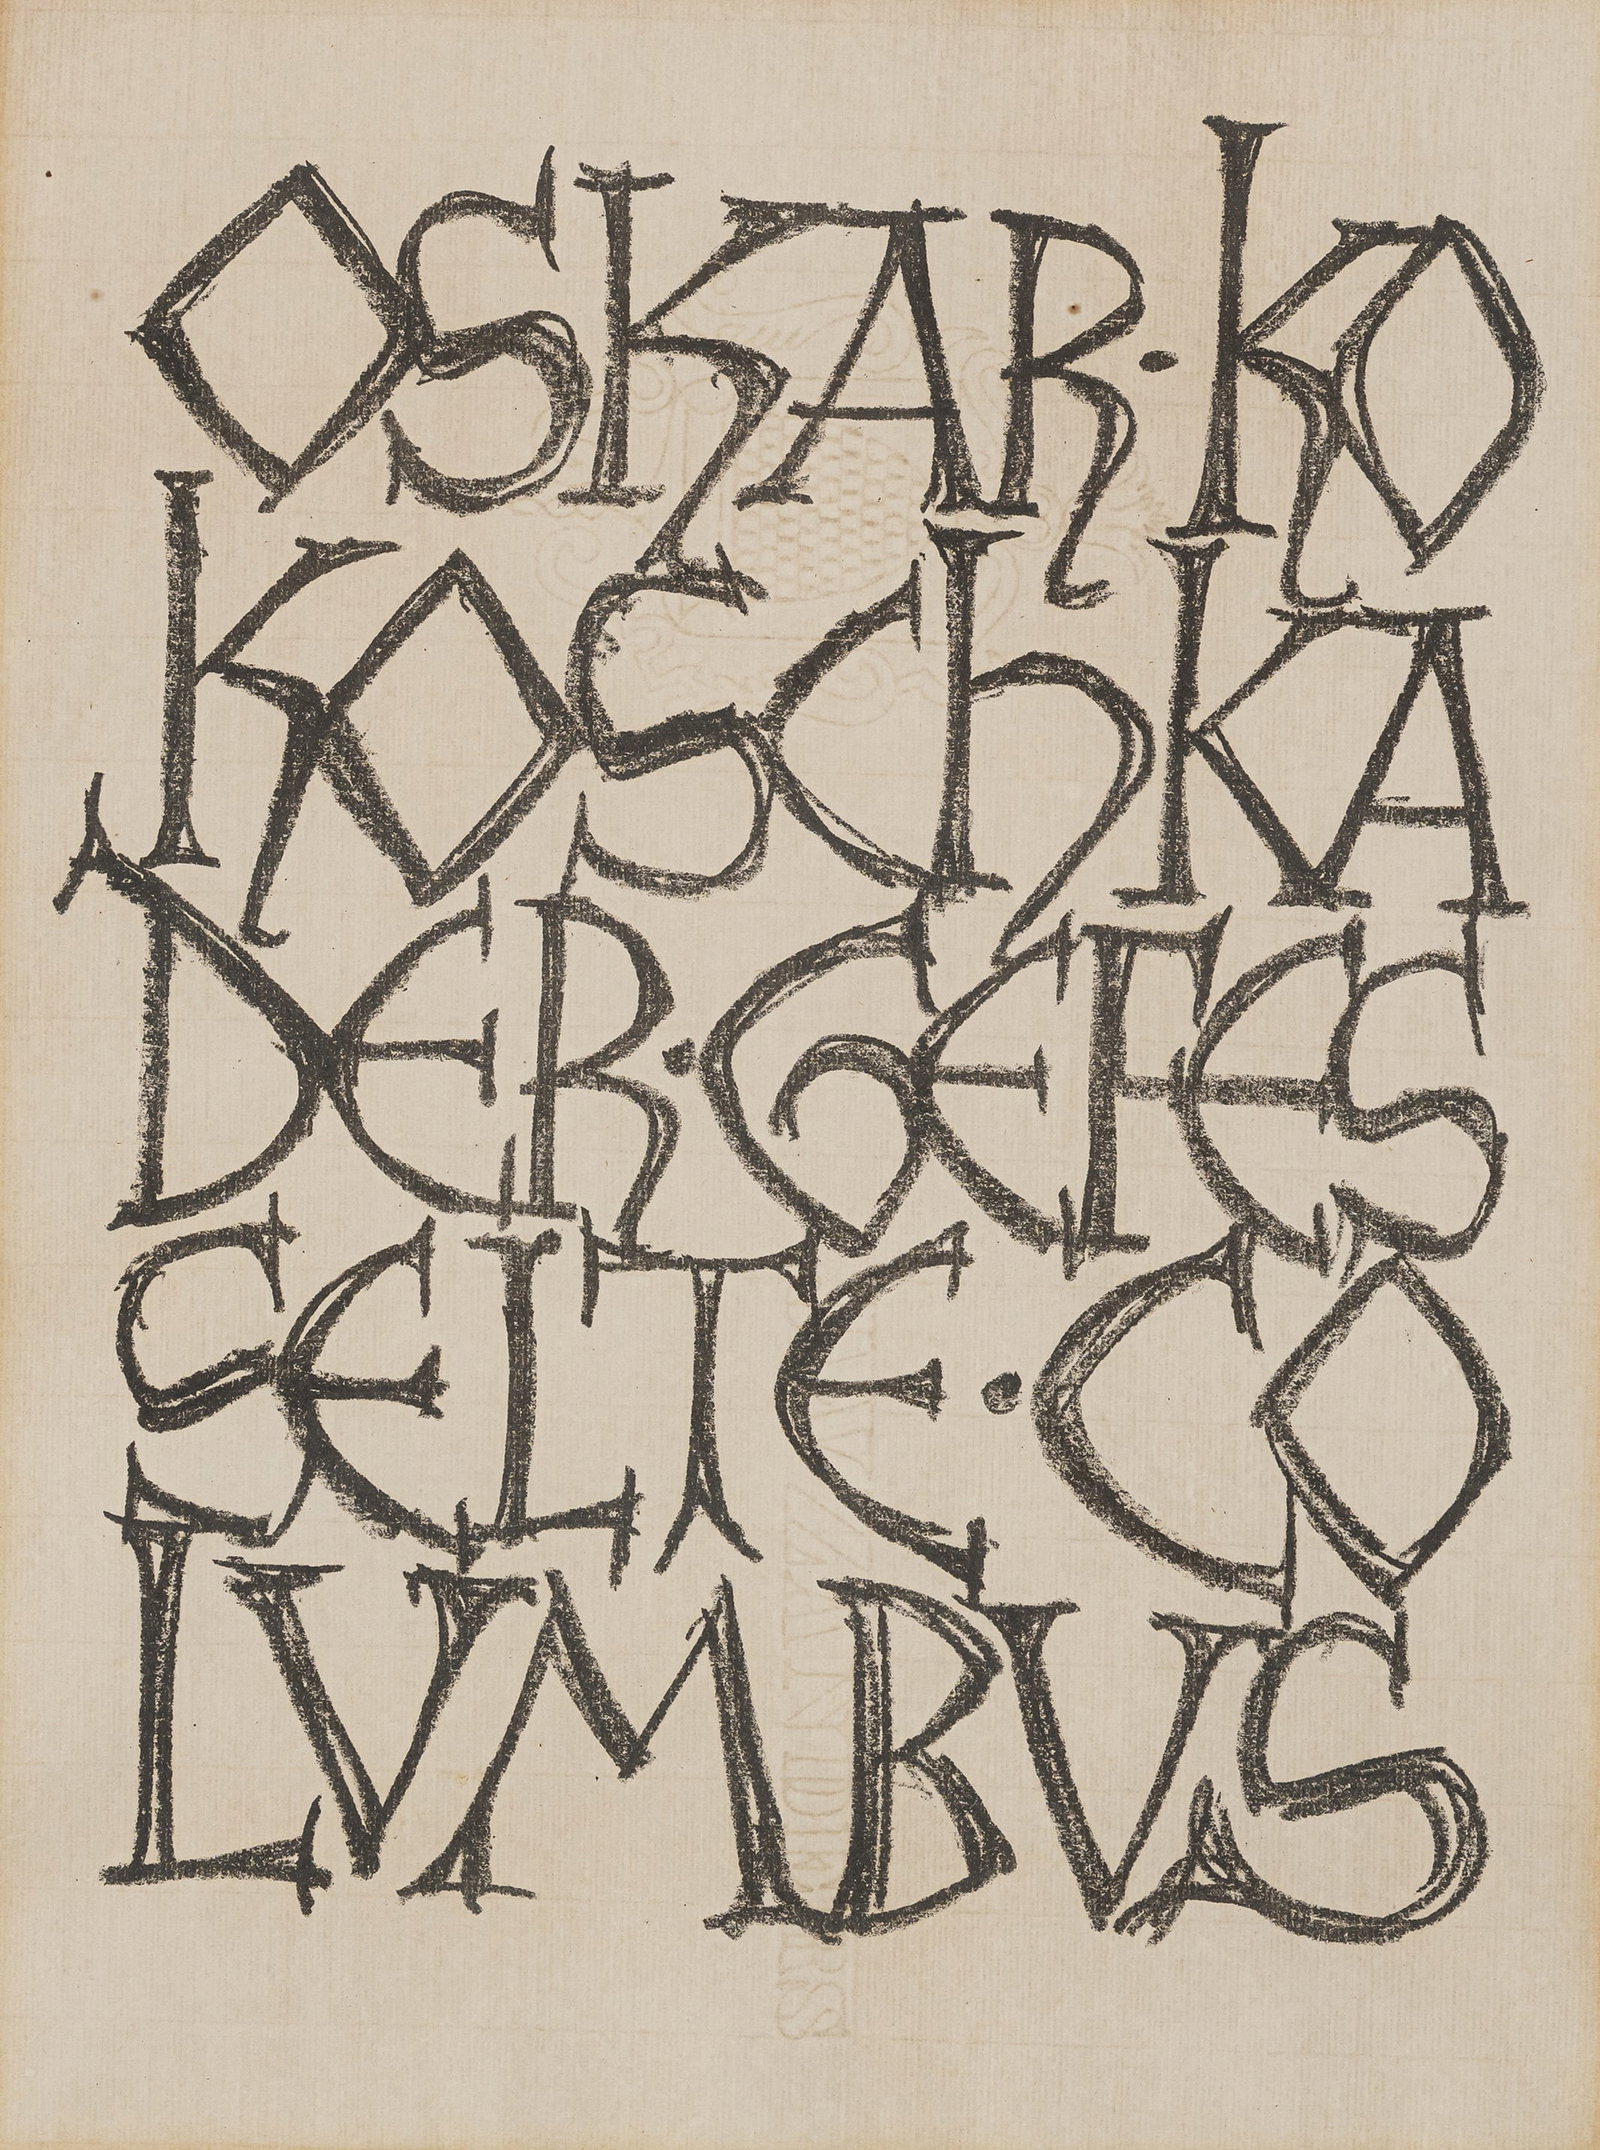 OSKAR·KO
KOSChKA
DER·GEFES
SELTE·CO
LVMBVS